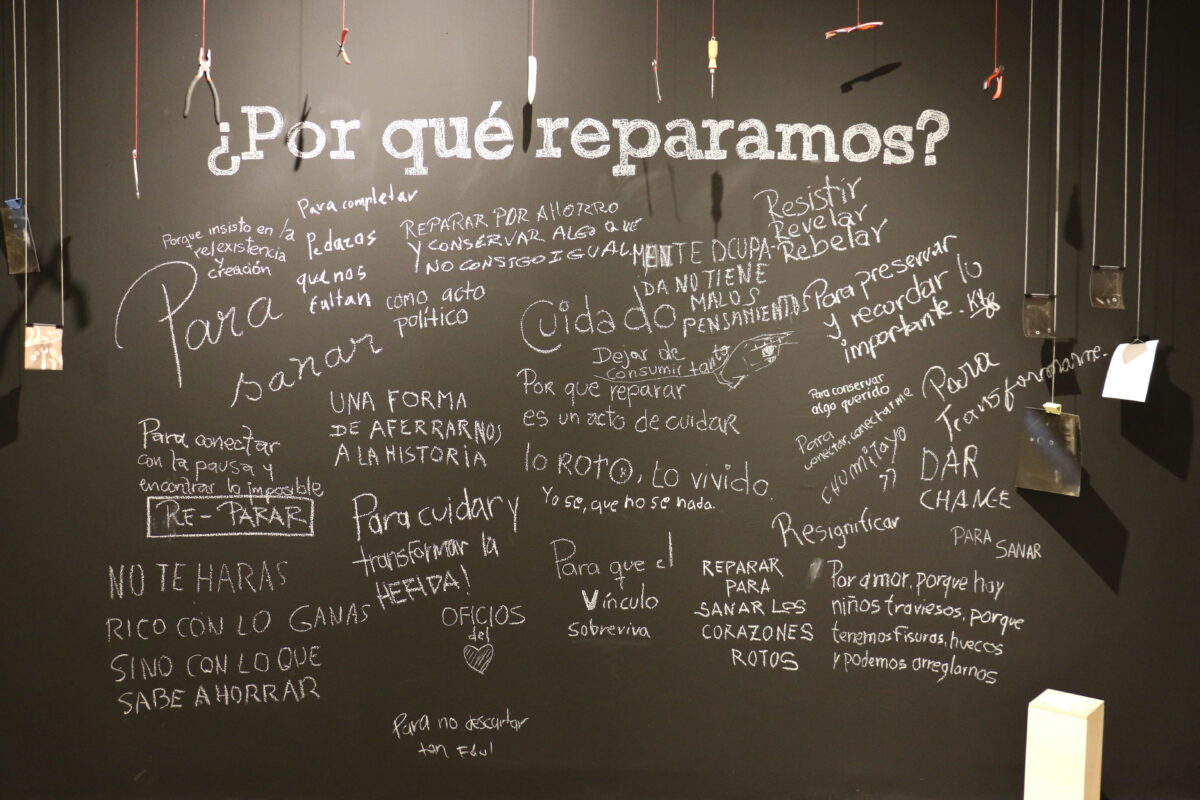 ¿Por qué reparamos?
Para completar
Pedazos
que nos
faltan
Porque insisto en la
re(existencia
y
creación
REPARAR POR AHORRO
Y CONSERVAR ALGO QUE
NO CONSIGO IGUAL
como acto
político
MENTE OCUPA-
DA NO TIENE
MALOS
PENSAMIENTOS
Resistir
Revelar
Rebelar
Para
sanar
Cuidado
Para preservar
y recordar lo
importante.
Dejar de
consumir tanto
Por que reparar
es un acto de cuidar
Para conservar
algo querido
Para
conectar, conectarme
CHUMILAYO
Para
Transformarme.
UNA FORMA
DE AFERRARNOS
A LA HISTORIA
Para conectar
con la pausa y
encontrar lo imposible
RE-PARAR
lo ROTO, Lo vivido.
Yo se, que no se nada.
DAR
CHANCE
Para cuidar y
transformar la
HERIDA!
Resignificar
PARA
SANAR
NO TE HARAS
RICO CON LO GANAS
SINO CON LO QUE
SABE AHORRAR
OFICIOS
del
Para que el
Vínculo
sobreviva
REPARAR
PARA
SANAR LOS
CORAZONES
ROTOS
Por amor, porque hay
niños traviesos, porque
tenemos fisuras, huecos
y podemos arreglarnos
Para no descartar
tan